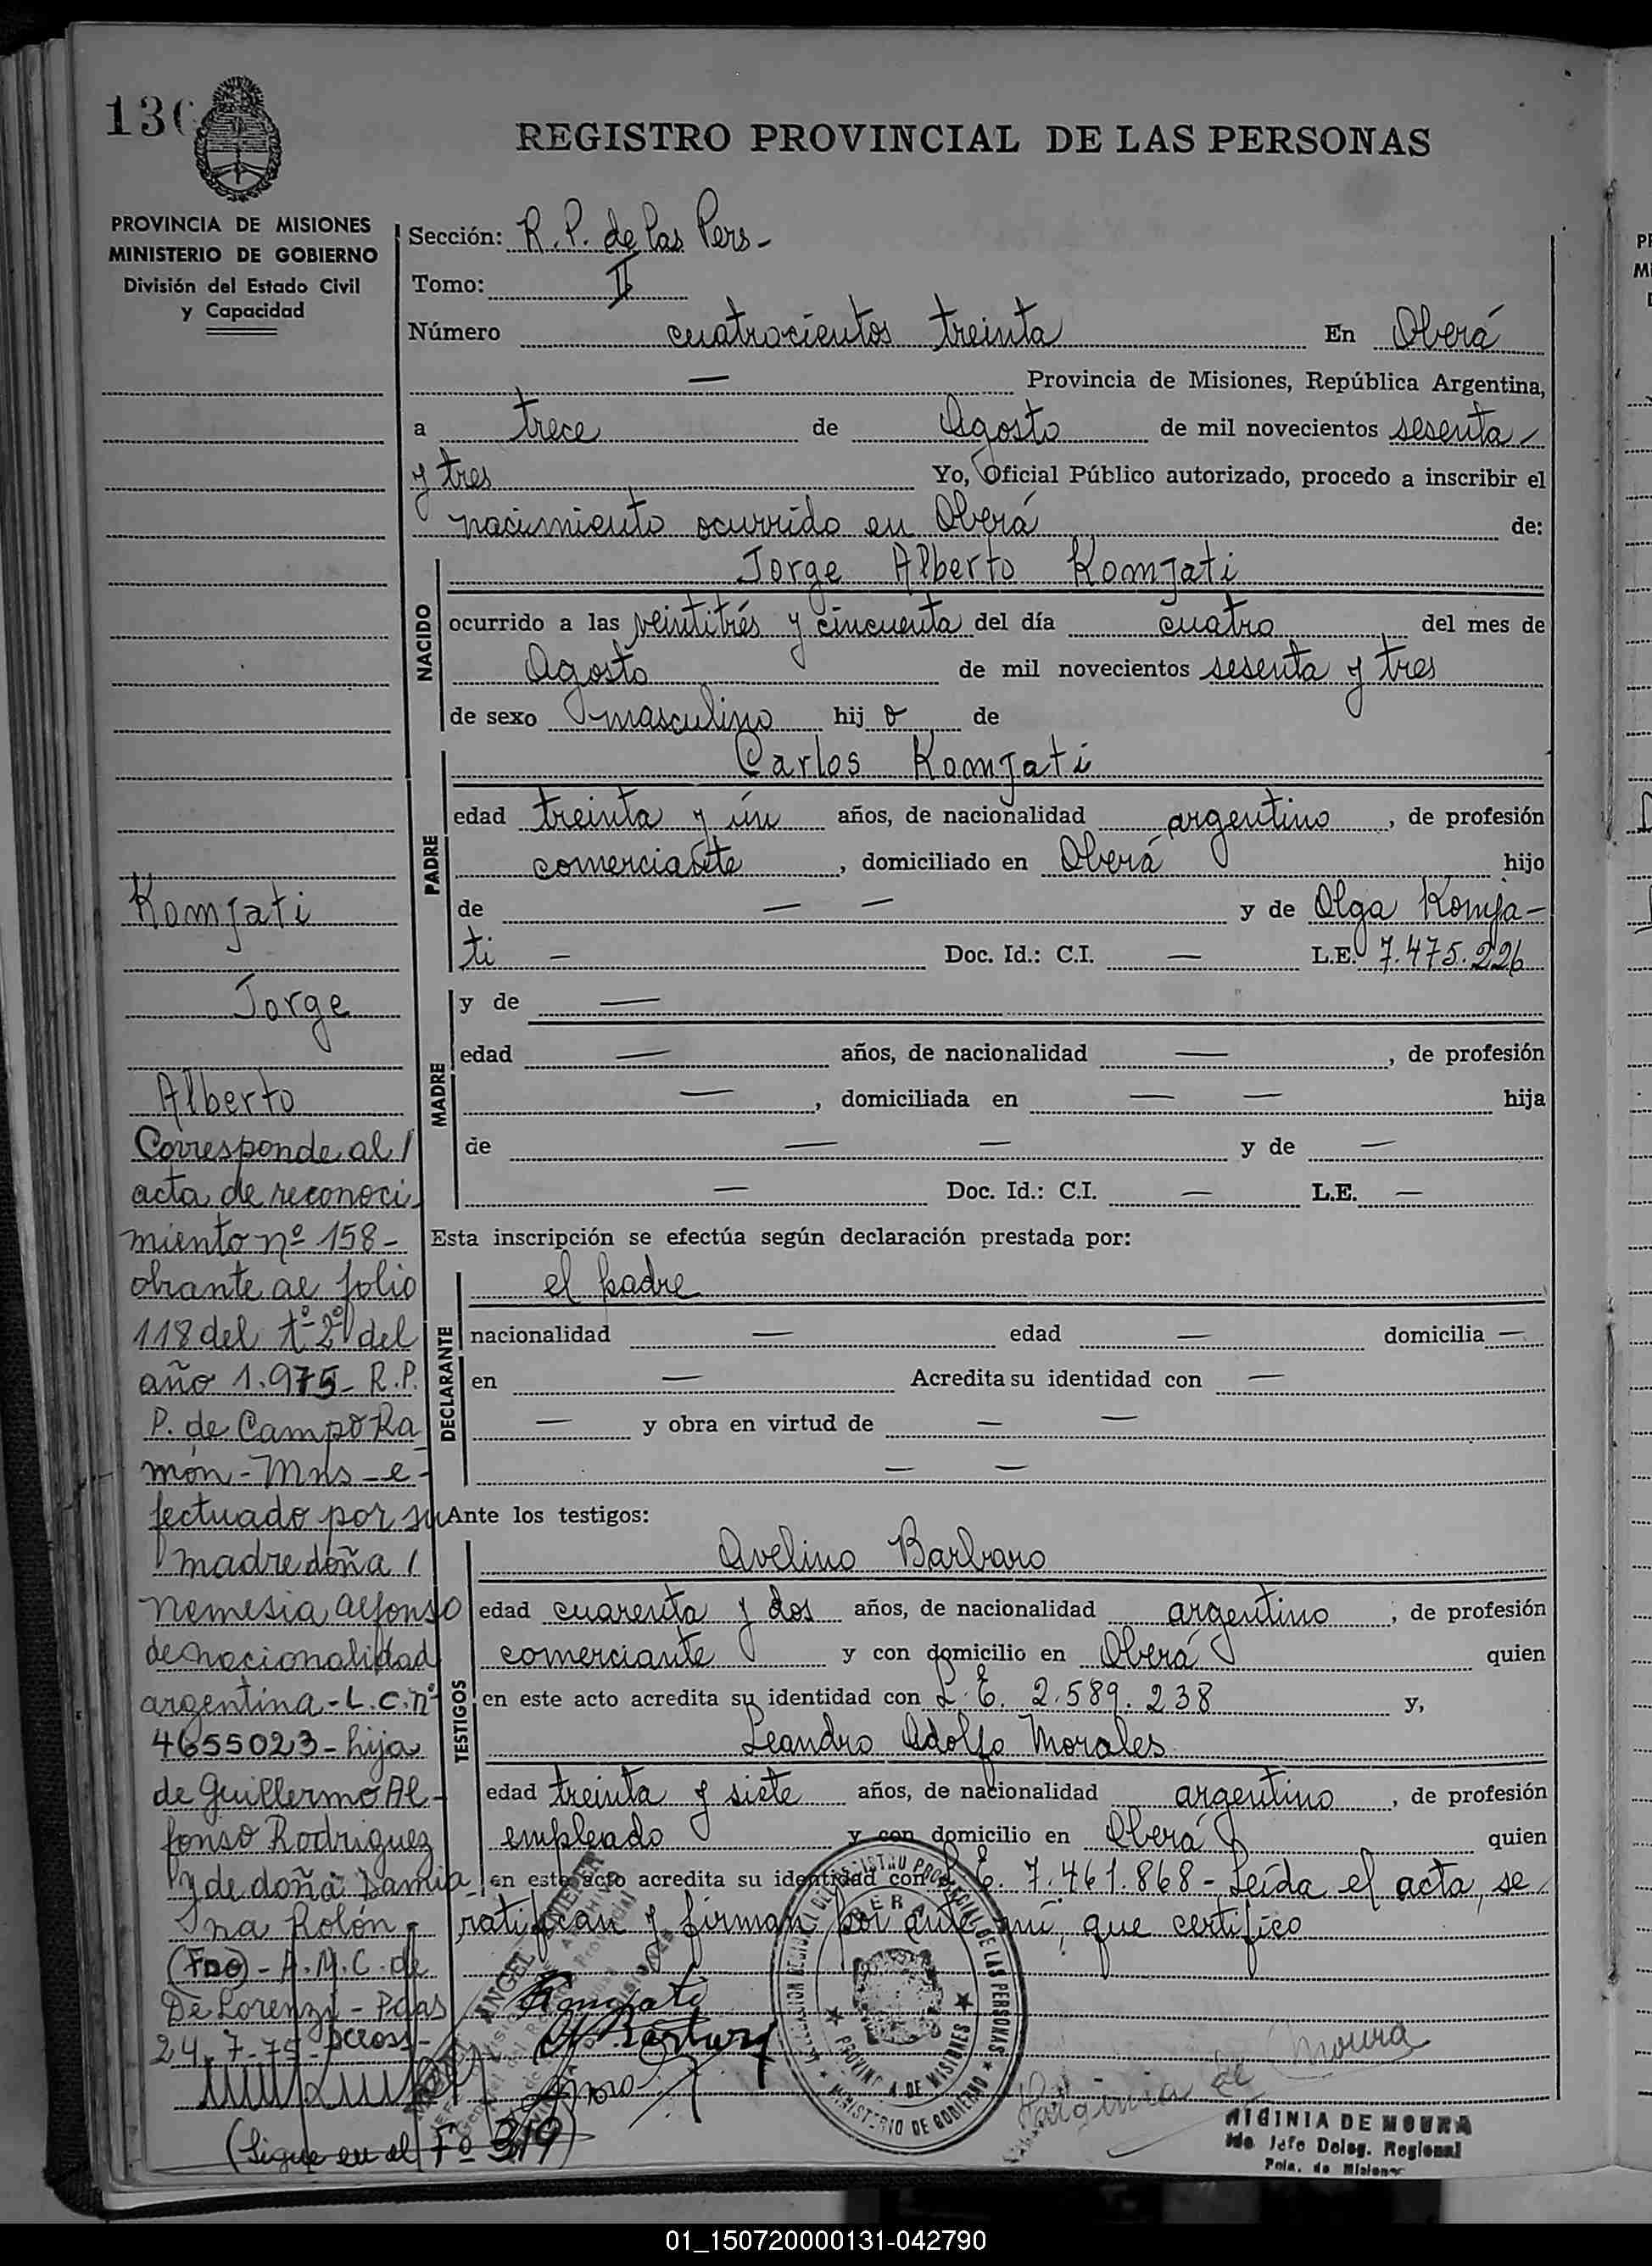 REGISTRO PROVINCIAL DE LAS PERSONAS
PROVINCIA DE MISIONES
MINISTERIO DE GOBIERNO
División del Estado Civil
y Capacidad
Sección: R. P. de las Pers-
Tomo: II
Número cuatrocientos treinta En Oberá
— Provincia de Misiones, República Argentina,
a trece de Agosto de mil novecientos sesenta
y tres Yo, Oficial Público autorizado, procedo a inscribir el
nacimiento ocurrido en Oberá de:
NACIDO
Jorge Alberto Komjati
ocurrido a las veintitrés y cincuenta del día cuatro del mes de
Agosto de mil novecientos sesenta y tres
de sexo masculino hijo de
PADRE
Carlos Komjati
edad treinta y ún años, de nacionalidad argentino, de profesión
comerciante, domiciliado en Oberá hijo
de — — y de Olga Komja-
ti — Doc. Id.: C.I. — L.E. 7.475.226
MADRE
y de —
edad — años, de nacionalidad —, de profesión
—, domiciliada en — — hija
de — — y de —
— Doc. Id.: C.I. — L.E. —
Esta inscripción se efectúa según declaración prestada por:
DECLARANTE
el padre
nacionalidad — edad — domicilia —
en — Acredita su identidad con —
— y obra en virtud de — —
— —
Ante los testigos:
TESTIGOS
Avelino Barbaro
edad cuarenta y dos años, de nacionalidad argentino, de profesión
comerciante y con domicilio en Oberá quien
en este acto acredita su identidad con L.E. 2.589.238 y,
Leandro Adolfo Morales
edad treinta y siete años, de nacionalidad argentino, de profesión
empleado y con domicilio en Oberá quien
en este acto acredita su identidad con L.E. 7.461.868- Leída el acta, se
ratifican y firman por ante mí, que certifico
Komjati
Jorge
Alberto
Corresponde al /
acta de reconoci-
miento nº 158-
obrante al folio
118 del tº 2º del
año 1.975- R.P.
P. de Campo Ra
món - Mns - e-
fectuado por su
madre doña /
Nemesia Alfonso
de nacionalidad
argentina - L.C. nº
4655023 - hija
de Guillermo Al-
fonso Rodriguez
y de doña Damia-
na Rolón-
(Fdo) - A.M.C. de
De Lorenzi - Pdas
24-7-75-
(Sigue en el Fº 319)
Komjati
MINISTERIO DE GOBIERNO
PROVINCIA DE MISIONES
de Moura
HIGINIA DE MOURA
Jefe Deleg. Regional
01_150720000131-042790